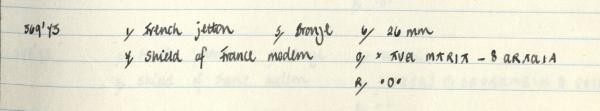 369'Y3 1/ French jetton 5/ Bronze 6/ 26 mm
4/ shield of France modern 9/ × AVE MARIA – 8 GRACIA
R/ •O•